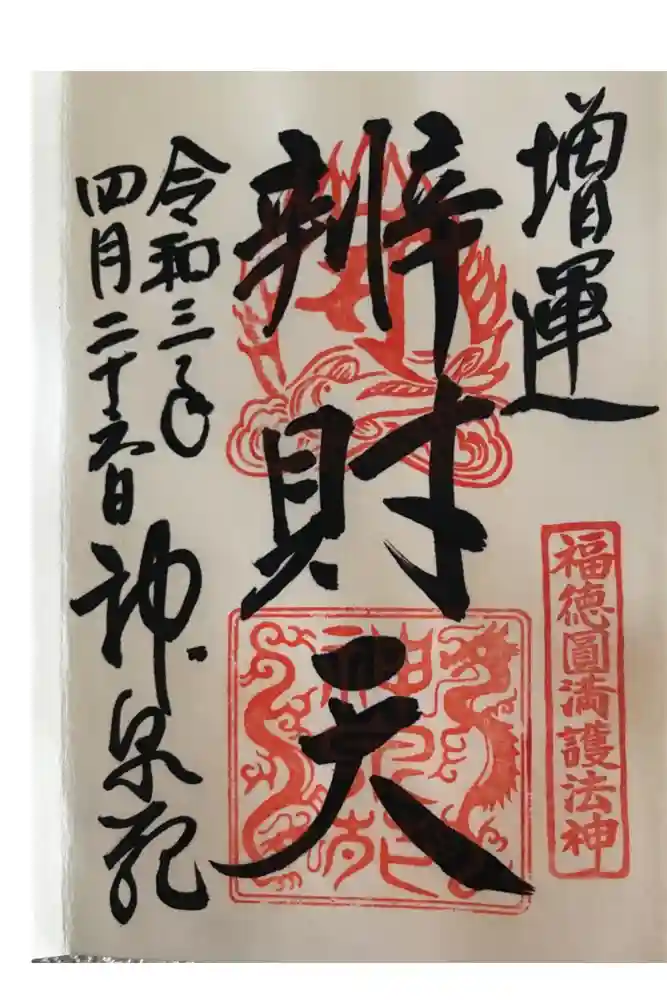 増運
福徳圓満護法神
辨財天
令和三年
四月二十六日
神泉苑